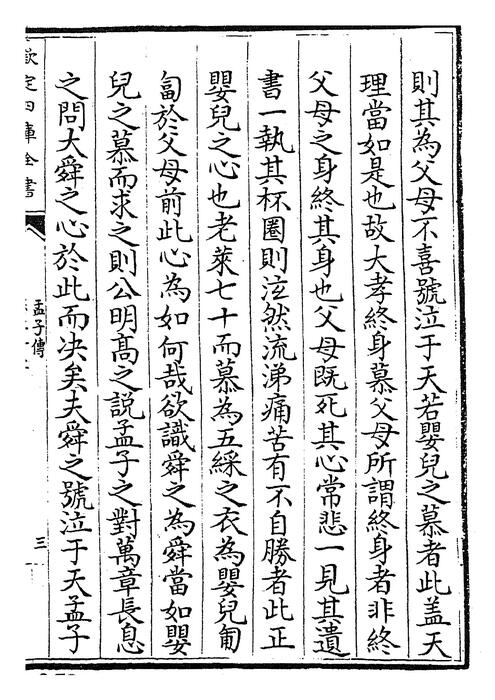 則其為父母不喜號泣于天若嬰兒之慕者此盖天
理當如是也故大孝終身慕父母所謂終身者非終
父母之身終其身也父母既死其心常悲一見其遺
書一執其杯圈則泫然流涕痛苦有不自勝者此正
嬰兒之心也老萊七十而慕為五綵之衣為嬰兒匍
匐於父母前此心為如何哉欲識舜之為舜當如嬰
兒之慕而求之則公明髙之說孟子之對萬章長息
之問大舜之心於此而决矣夫舜之號泣于天孟子
欽定四庫全書
孟子傳
三